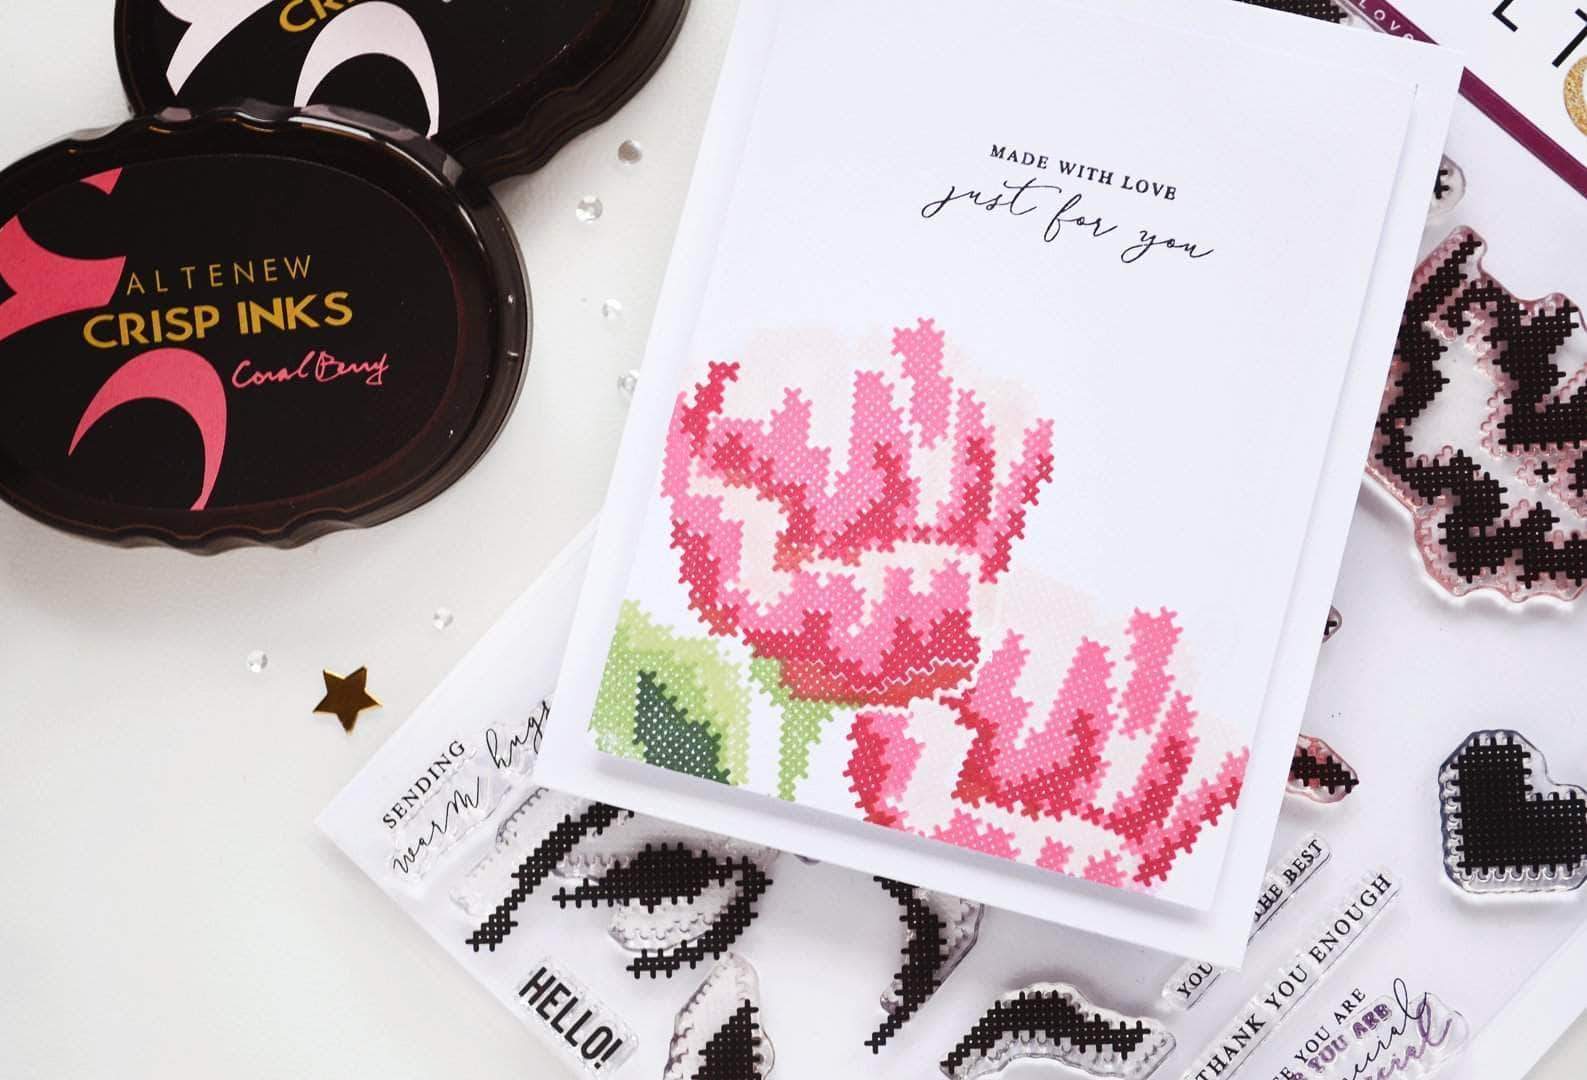 CR
ALTENEW
CRISP INKS
Coral Berry
LOVE
LT
MADE WITH LOVE
just for you
SENDING
warm hugs
HELLO!
YOU
THE BEST
THANK YOU ENOUGH
YOU ARE
YOU ARE